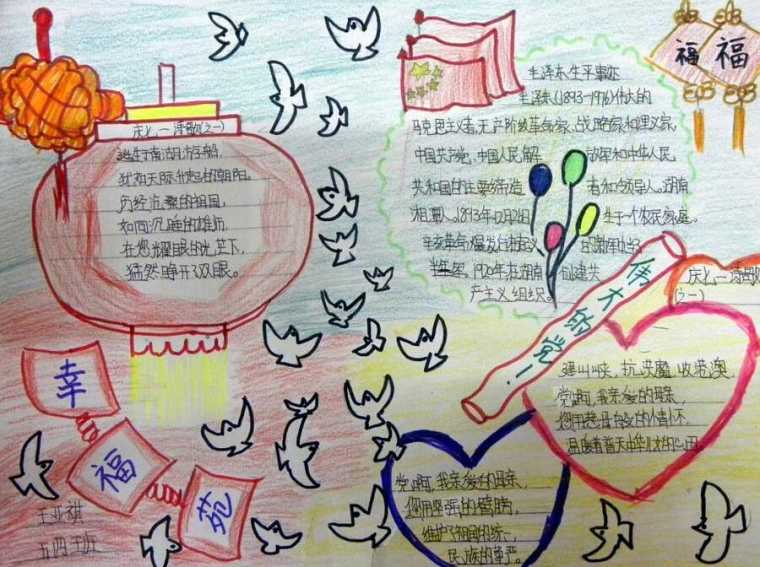 庆七一诗歌(之一)
诞生于南湖的船,
犹如天际升起的朝阳,
历经沧桑的祖国,
如同沉睡的雄狮,
在您耀眼的光芒下,
猛然睁开双眼。
幸
福
苑
五四班
毛泽东生平事迹
毛泽东(1893-1976)伟大的
马克思主义者,无产阶级革命家、战略家和理论家,
中国共产党,中国人民解放军和中华人民
共和国的主要缔造者和领导人。湖南
湘潭人。1893年12月26日生于一个农民家庭。
辛亥革命爆发后
1920年在湖南创建共
产主义组织。
福
福
伟大的党!
庆七一诗歌
(之一)
抗洪魔,收港澳,
党啊,我亲爱的母亲,
您用慈母般的情怀,
温暖着普天中华儿女的心田。
党啊,我亲爱的母亲,
您用坚强的臂膀,
维护了祖国的统一,
民族的尊严。